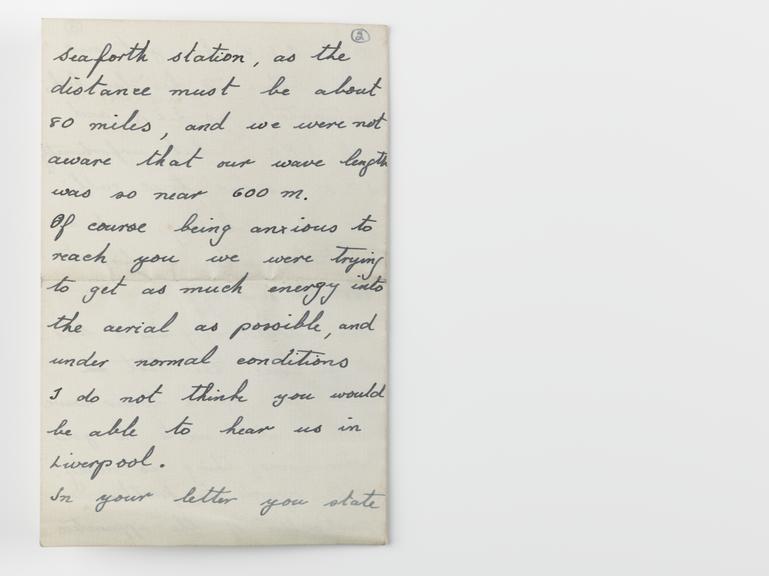 2
Seaforth station, as the
distance must be about
80 miles, and we were not
aware that our wave length
was so near 600 m.
Of course being anxious to
reach you we were trying
to get as much energy into
the aerial as possible, and
under normal conditions
I do not think you would
be able to hear us in
Liverpool.
In your letter you state